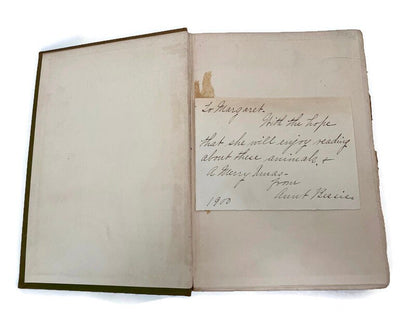 To Margaret.
With the hope
that she will enjoy reading
about these animals. +
A Merry Xmas -
from
1900 Aunt Bessie